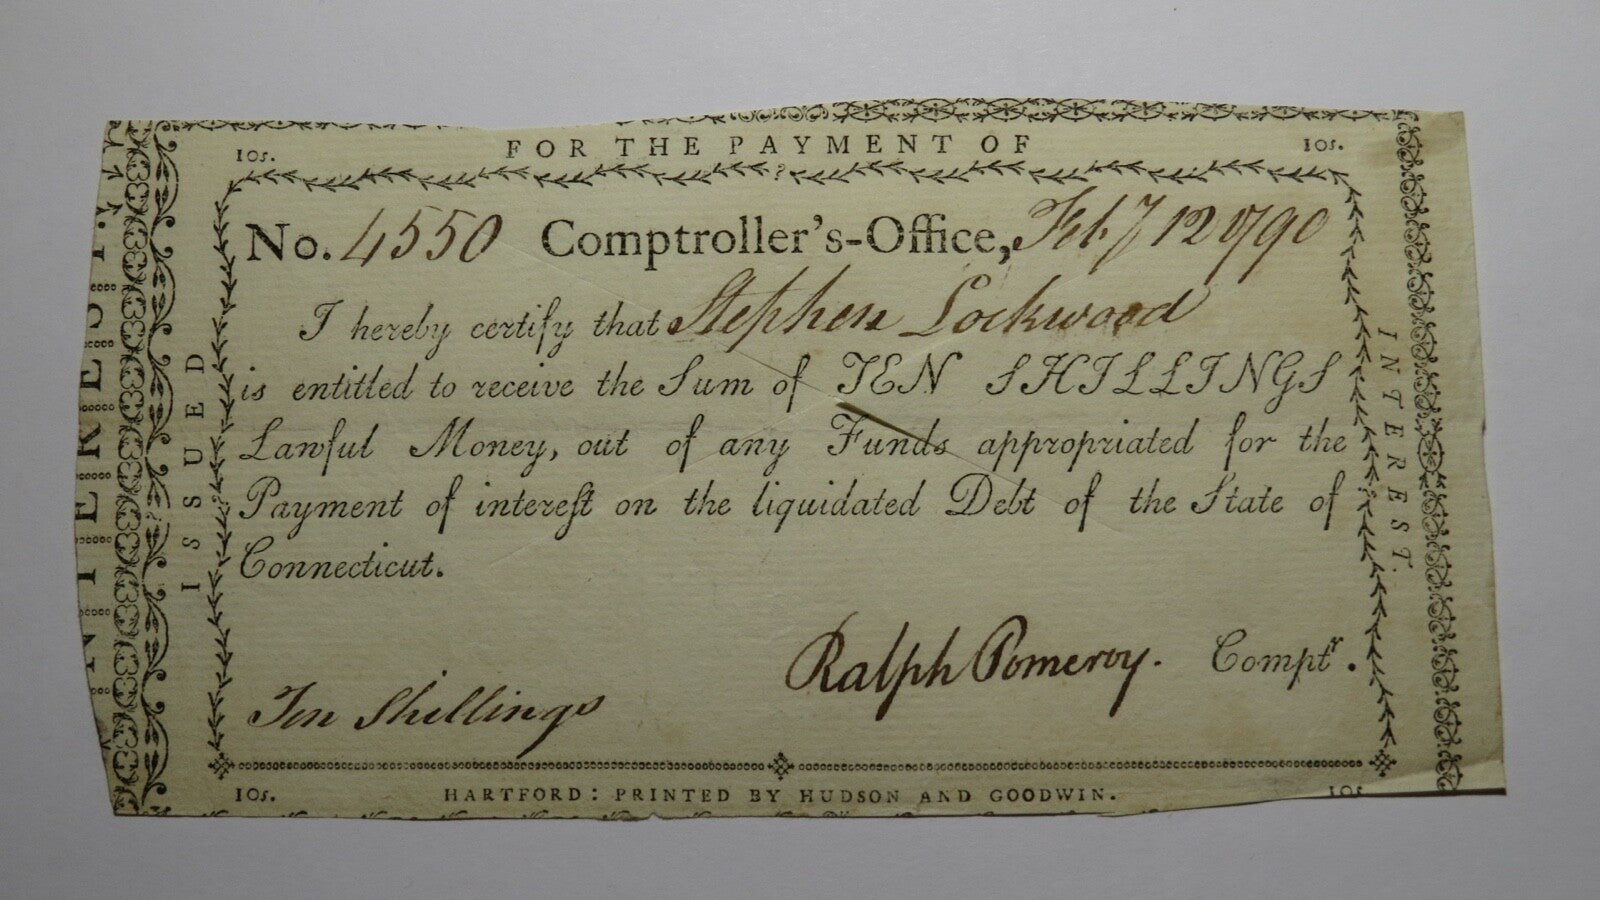 FOR THE PAYMENT OF
10s. 10s.
No. 4550 Comptroller's-Office, Feby 12 1790
I hereby certify that Stephen Lockwood
is entitled to receive the Sum of TEN SHILLINGS
Lawful Money, out of any Funds appropriated for the
Payment of interest on the liquidated Debt of the State of
Connecticut.
Ralph Pomeroy. Comptr.
Ten Shillings
10s. HARTFORD: PRINTED BY HUDSON AND GOODWIN. 10s
ISSUED
INTEREST.
INTEREST